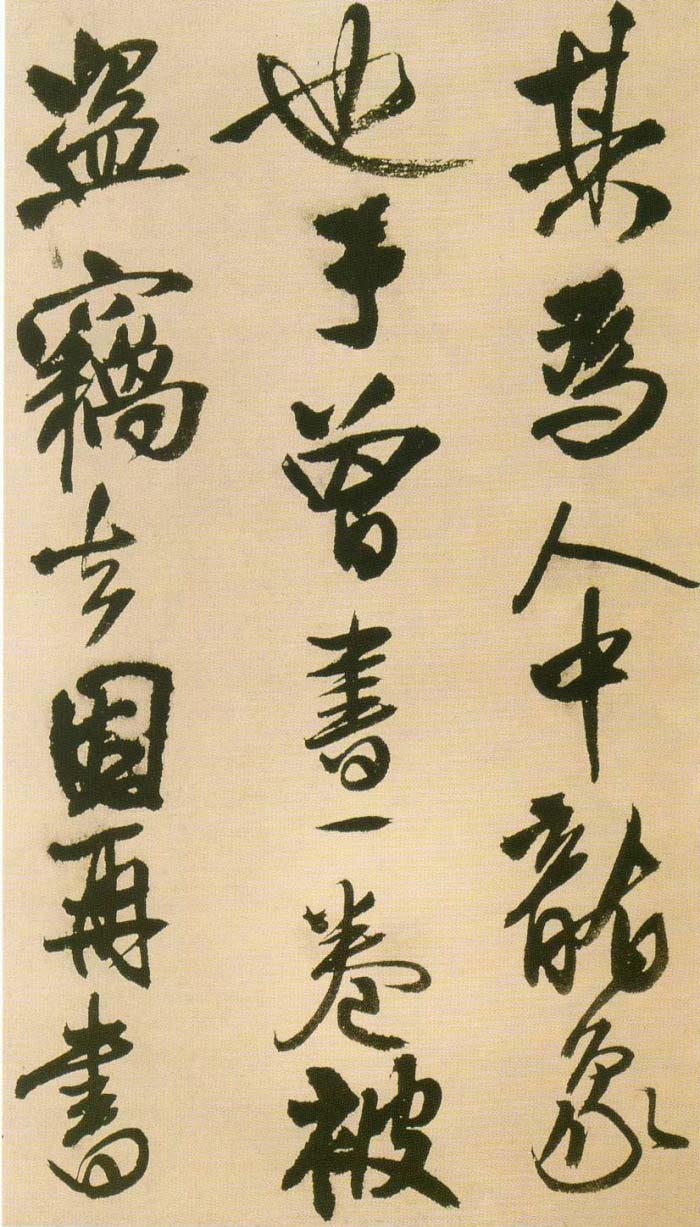 其為人中龍象
也予曾書一卷被
盜竊去固再書